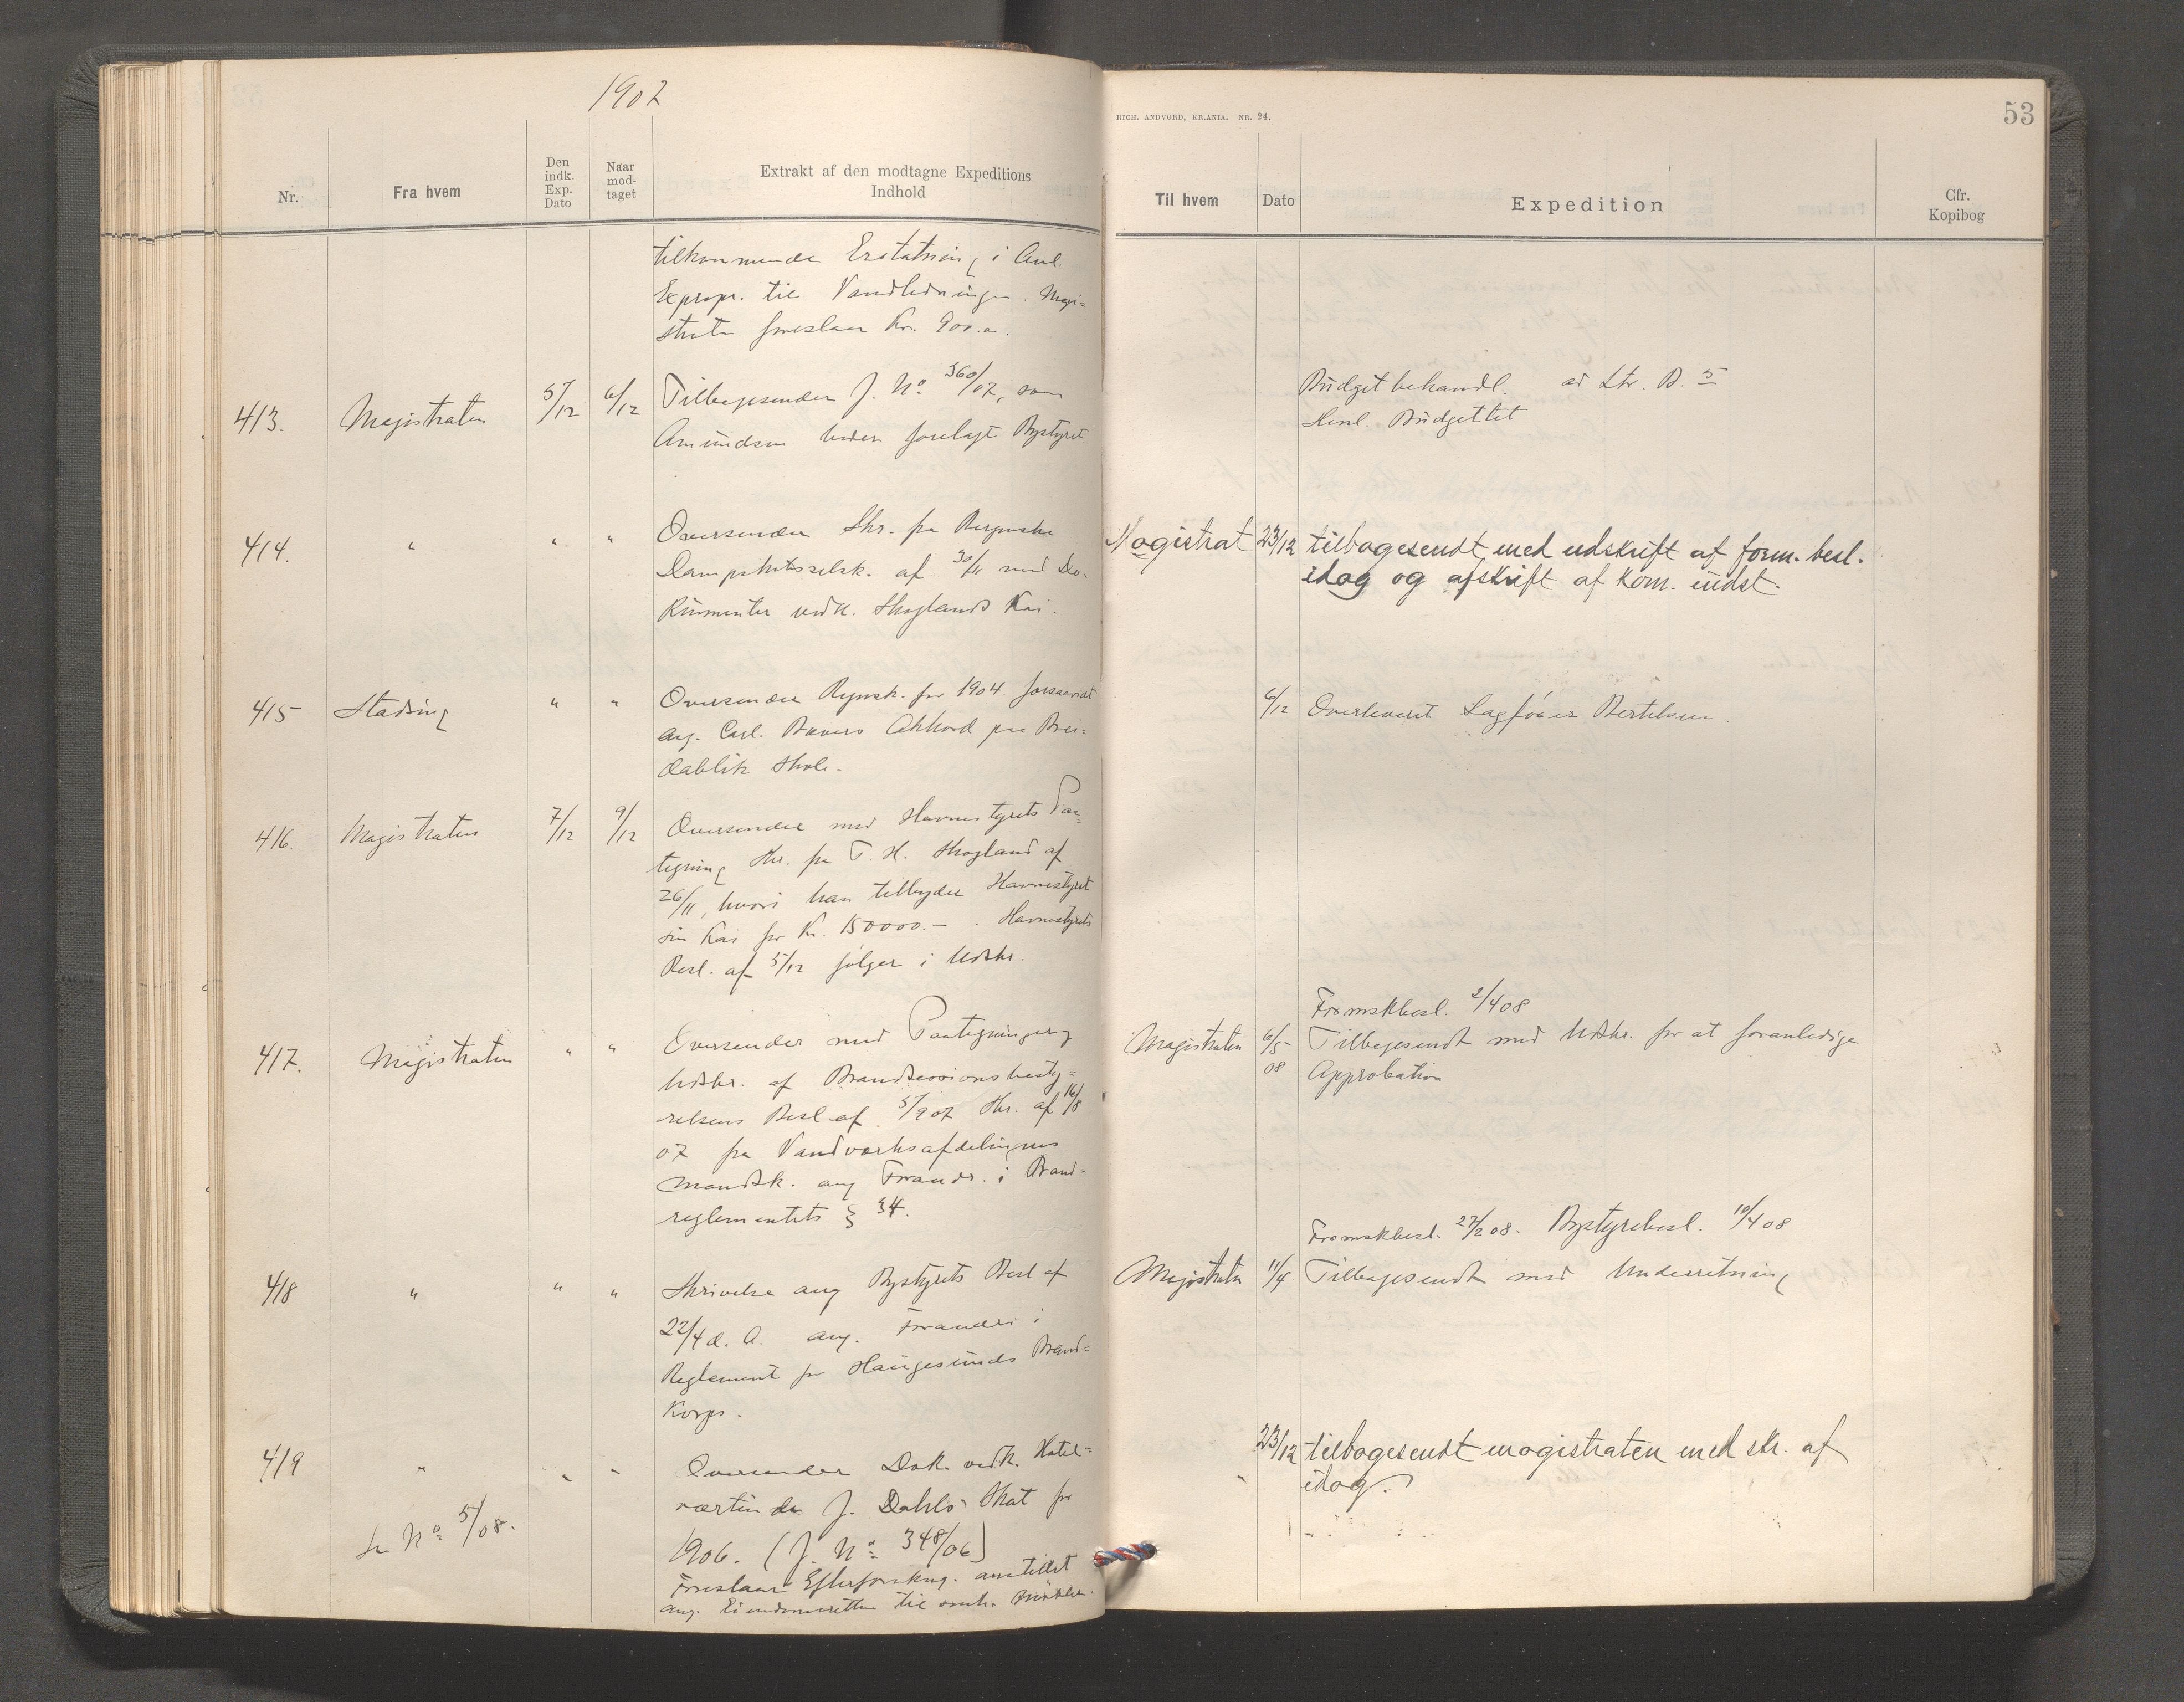 1907
Nr.
Fra hvem
Den
indk.
Exp.
Dato
Naar
mod-
taget
Extrakt af den modtagne Expeditions
Indhold
tilkommende Erstatning i Anl.
Expropr. til Vandledningen. Magi-
straten foreslaar Kr. 900.
413. Magistraten 5/12 6/12 Tilbagesender J. No. 360/07, som
Amundsen forelagt Bystyret
414. " " " Oversender Skr. fra Bergenske
Dampskibsselsk. af 30/11 med Do-
kumenter vedk. Skoglands Kai.
415 Stadsing " " Oversender Regnsk. for 1904
ang. Carl. Akkord paa Brei-
dablik Skole.
416. Magistraten 7/12 9/12 Oversender med Havnestyrets Paa-
tegning Skr. fra T. H. Skogland af
26/11, hvori han tilbyder Havnestyret
sin Kai for Kr. 150000.- . Havnestyrets
Besl. af 5/12 følger i Udskr.
417. Magistraten " " Oversender med Paategninger
Udskr. af Brandsessionsbesty-
relsens Besl. af 5/9 07 Skr. af 16/8
07 fra Vandværksafdelingens
Mandsk. ang Forandr. i Brand-
reglementets § 34.
418 " " " Skrivelse ang Bystyrets Besl af
22/4 d. A. ang. Forandr. i
Reglement for Haugesunds Brand-
Korps.
419 " " " Oversender Dok. vedk. Hotel-
værtinde J. Dahls Skat for
1906. (J. No. 348/06)
Se No. 5/08.
Foreslaar Efterforskng. anstillet
ang. Eiendomsretten til
RICH. ANDVORD, KR.ANIA. NR. 24.
53
Til hvem
Dato
Expedition
Cfr.
Kopibog
Budgetbehandl. ad Ltr. B. 5
Henl. Budgettet
Magistrat 23/12 tilbagesendt med udskrift af form. besl.
idag og afskrift af kom. indst.
6/12 Overleveret Sagfører Bertelsen.
Fromskbesl. 2/4 08
Magistraten 6/5 08 Tilbagesendt med Udskr. for at foranledige
Approbation
Fromskbesl. 27/2 08. Bystyrebesl. 10/4 08
Magistraten 11/4 Tilbagesendt med Underretning
23/12 tilbagesendt magistraten med skr. af
idag.